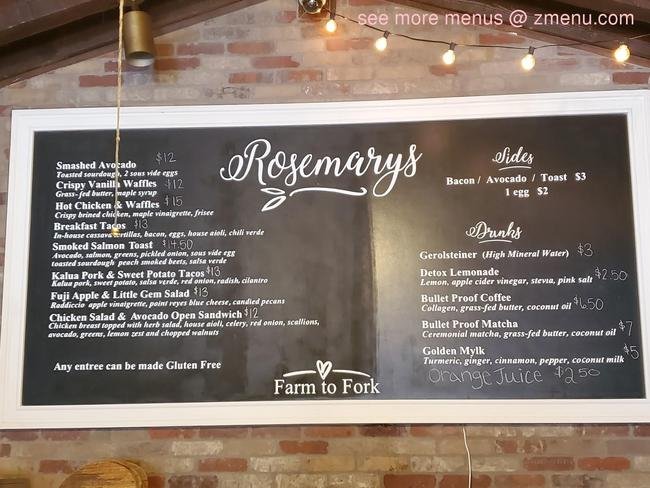 see more menus @ zmenu.com
Rosemarys
Smashed Avocado $12
Toasted sourdough, 2 sous vide eggs
Crispy Vanilla Waffles $12
Grass-fed butter, maple syrup
Hot Chicken & Waffles $15
Crispy brined chicken, maple vinaigrette, frisee
Breakfast Tacos $13
In-house cassava tortillas, bacon, eggs, house aioli, chili verde
Smoked Salmon Toast $14.50
Avocado, salmon, greens, pickled onion, sous vide egg
toasted sourdough peach smoked beets, salsa verde
Kalua Pork & Sweet Potato Tacos $13
Kalua pork, sweet potato, salsa verde, red onion, radish, cilantro
Fuji Apple & Little Gem Salad $13
Raddiccio apple vinaigrette, point reyes blue cheese, candied pecans
Chicken Salad & Avocado Open Sandwich $12
Chicken breast topped with herb salad, house aioli, celery, red onion, scallions,
avocado, greens, lemon zest and chopped walnuts
Any entree can be made Gluten Free
Farm to Fork
Sides
Bacon / Avocado / Toast $3
1 egg $2
Drinks
Gerolsteiner (High Mineral Water) $3
Detox Lemonade $2.50
Lemon, apple cider vinegar, stevia, pink salt
Bullet Proof Coffee
Collagen, grass-fed butter, coconut oil $6.50
Bullet Proof Matcha $7
Ceremonial matcha, grass-fed butter, coconut oil
Golden Mylk $5
Turmeric, ginger, cinnamon, pepper, coconut milk
Orange Juice $2.50